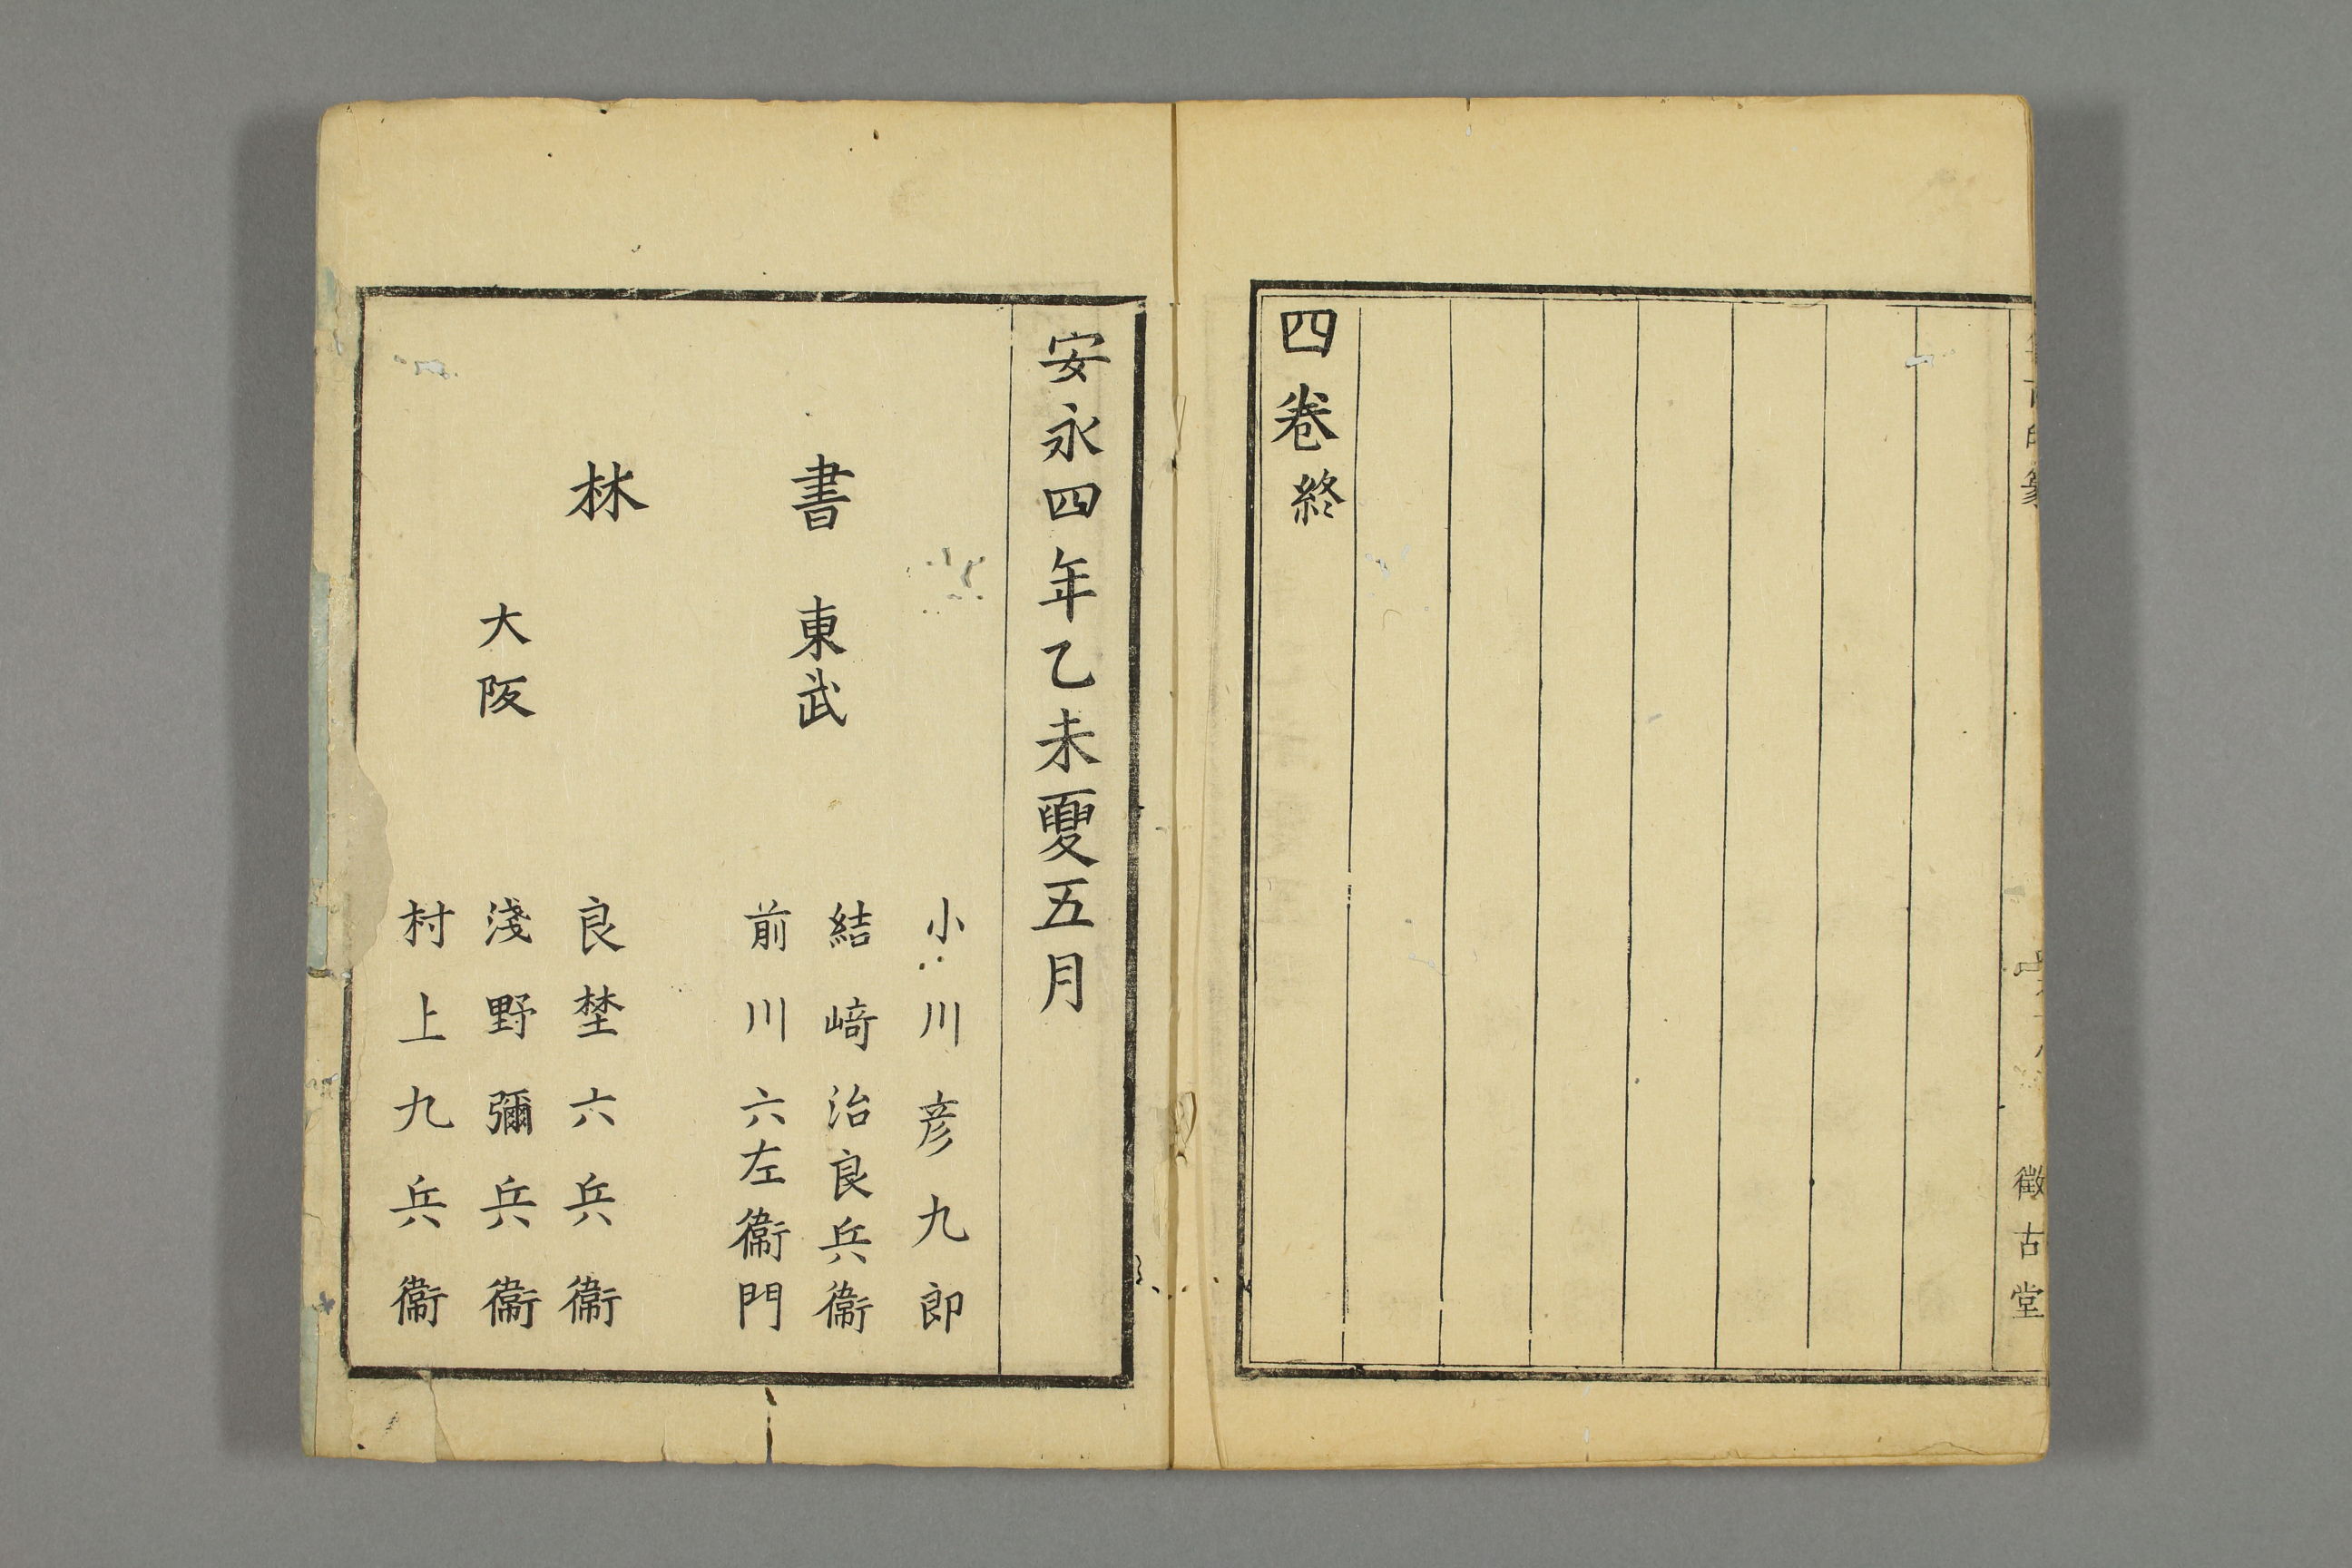 徵古堂
四卷終
安永四年乙未夏五月
書林
東武
小川彦九郎
結﨑治良兵衞
前川六左衞門
大阪
良埜六兵衞
淺野彌兵衞
村上九兵衞